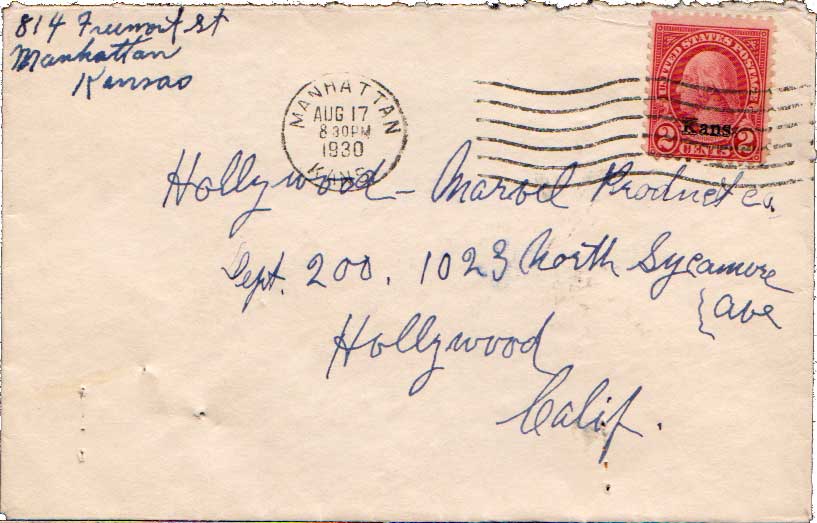 814 Freemont St
Manhattan
Kansas
MANHATTAN
AUG 17
8 30 PM
1930
KANS
UNITED STATES POSTAGE
Kans.
2 CENTS 2
Hollywood - Marvel Product Co.
Dept. 200. 1023 North Sycamore
Ave
Hollywood
Calif.